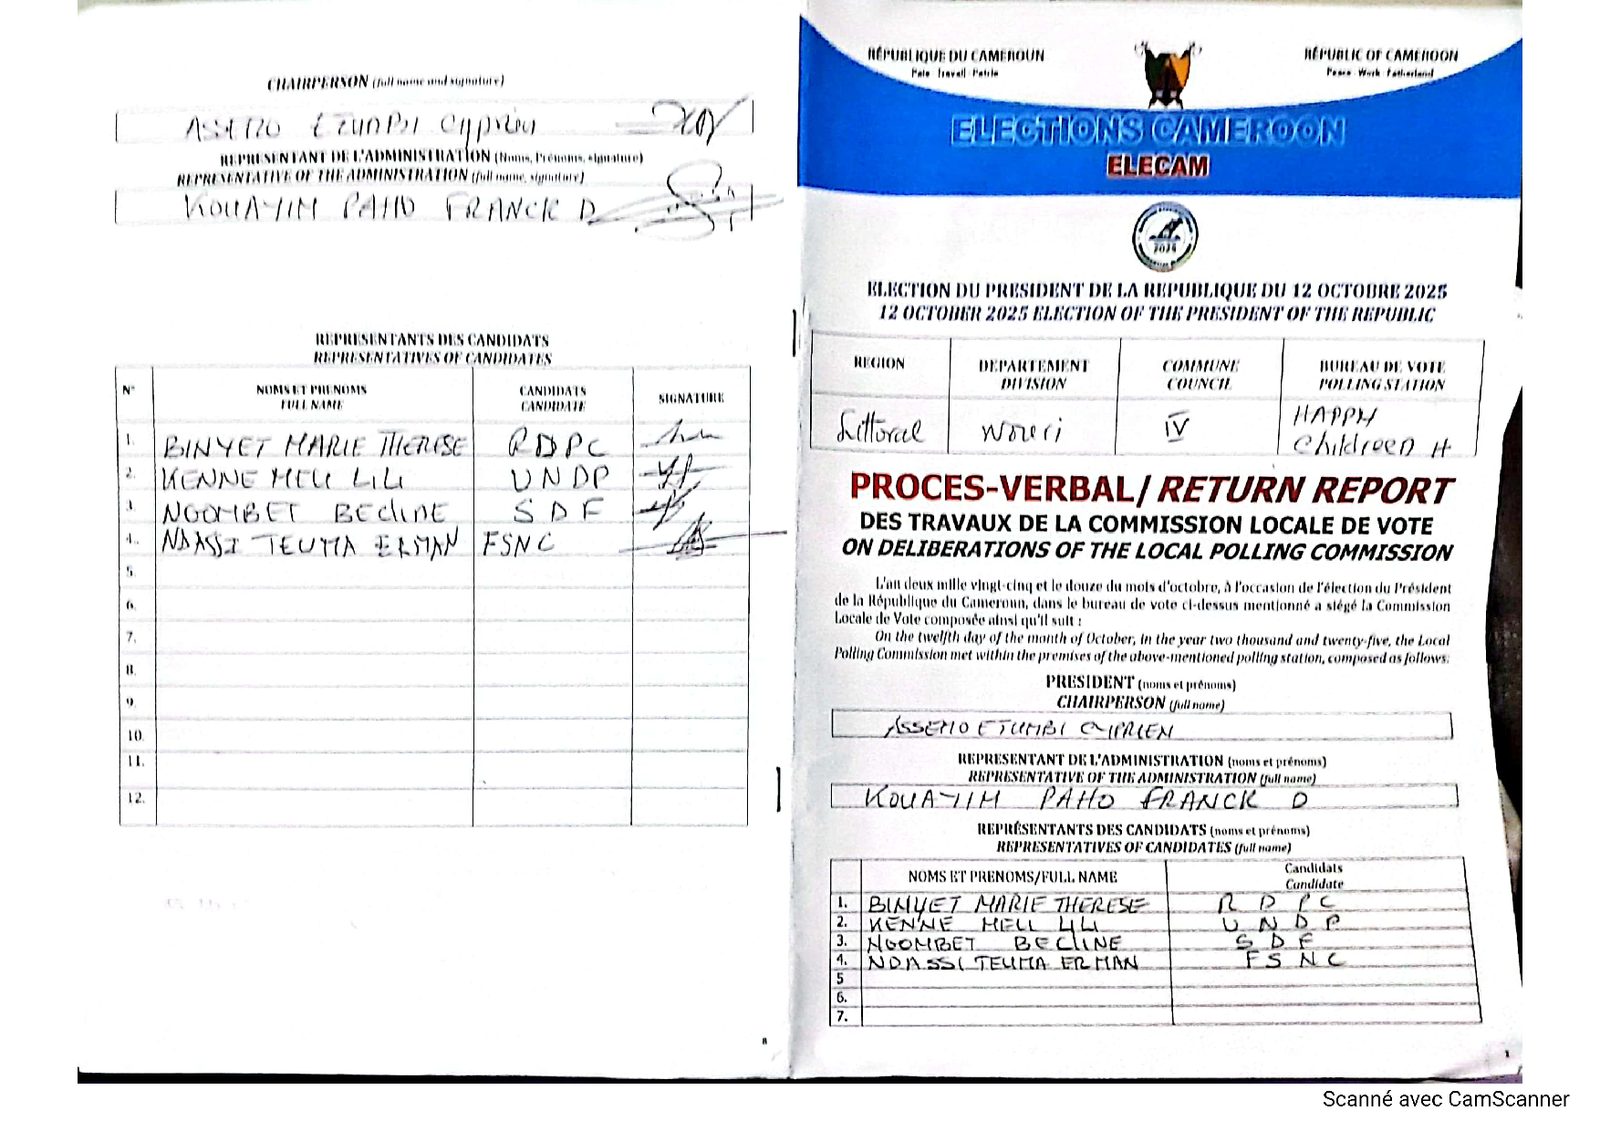 CHAIRPERSON (full name and signature)
ETUMBI Cyprien
REPRESENTANT DE L'ADMINISTRATION (Noms, Prénoms, signature)
REPRESENTATIVE OF THE ADMINISTRATION (full name, signature)
PAHO FRANCK D
REPRESENTANTS DES CANDIDATS
REPRESENTATIVES OF CANDIDATES
N° NOMS ET PRENOMS CANDIDATS SIGNATURE
FULL NAME CANDIDATE
1. BINYET MARIE THERESE RDPC
2. KENNE MELI LILI UNDP
3. NGOMBET BECLINE SDF
4. NDASSI TEUMA ERMAN FSNC
5.
6.
7.
8.
9.
10.
11.
12.
8
RÉPUBLIQUE DU CAMEROUN
Paix - Travail - Patrie
RÉPUBLIC OF CAMEROON
Peace - Work - Fatherland
ELECTIONS CAMEROON
ELECAM
2025
ELECTION DU PRESIDENT DE LA REPUBLIQUE DU 12 OCTOBRE 2025
12 OCTOBER 2025 ELECTION OF THE PRESIDENT OF THE REPUBLIC
REGION DEPARTEMENT COMMUNE BUREAU DE VOTE
DIVISION COUNCIL POLLING STATION
Littoral Wouri IV HAPPY
Childreen H
PROCES-VERBAL/ RETURN REPORT
DES TRAVAUX DE LA COMMISSION LOCALE DE VOTE
ON DELIBERATIONS OF THE LOCAL POLLING COMMISSION
L'an deux mille vingt-cinq et le douze du mois d'octobre, à l'occasion de l'élection du Président
de la République du Cameroun, dans le bureau de vote ci-dessus mentionné a siégé la Commission
Locale de Vote composée ainsi qu'il suit :
On the twelfth day of the month of October, in the year two thousand and twenty-five, the Local
Polling Commission met within the premises of the above-mentioned polling station, composed as follows:
PRESIDENT (noms et prénoms)
CHAIRPERSON (full name)
ASSEMO ETUMBI CYPRIEN
REPRESENTANT DE L'ADMINISTRATION (noms et prénoms)
REPRESENTATIVE OF THE ADMINISTRATION (full name)
PAHO FRANCK D
REPRÉSENTANTS DES CANDIDATS (noms et prénoms)
REPRESENTATIVES OF CANDIDATES (full name)
NOMS ET PRENOMS/FULL NAME Candidats
Candidate
1. BINYET MARIE THERESE RDPC
2. KENNE MELI LILI UNDP
3. NGOMBET BECLINE SDF
4. NDASSI TEUMA ERMAN FSNC
5
6.
7.
1
Scanné avec CamScanner